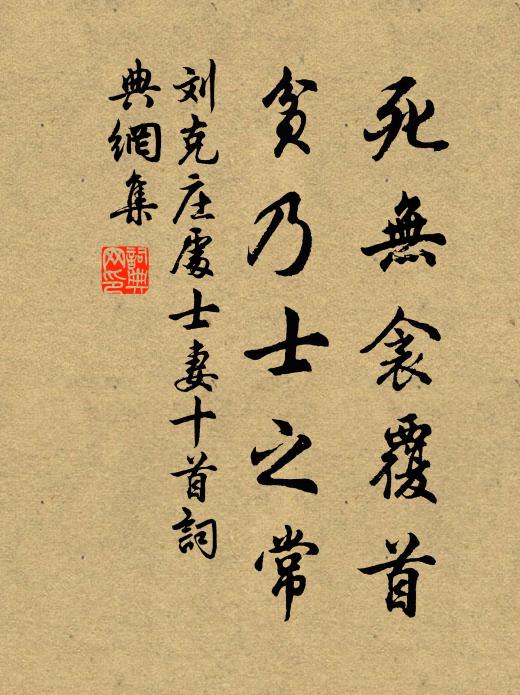 死無衾覆首
貧乃士之常
刘克庄處士妻十首詞
典網集
詞典
网印